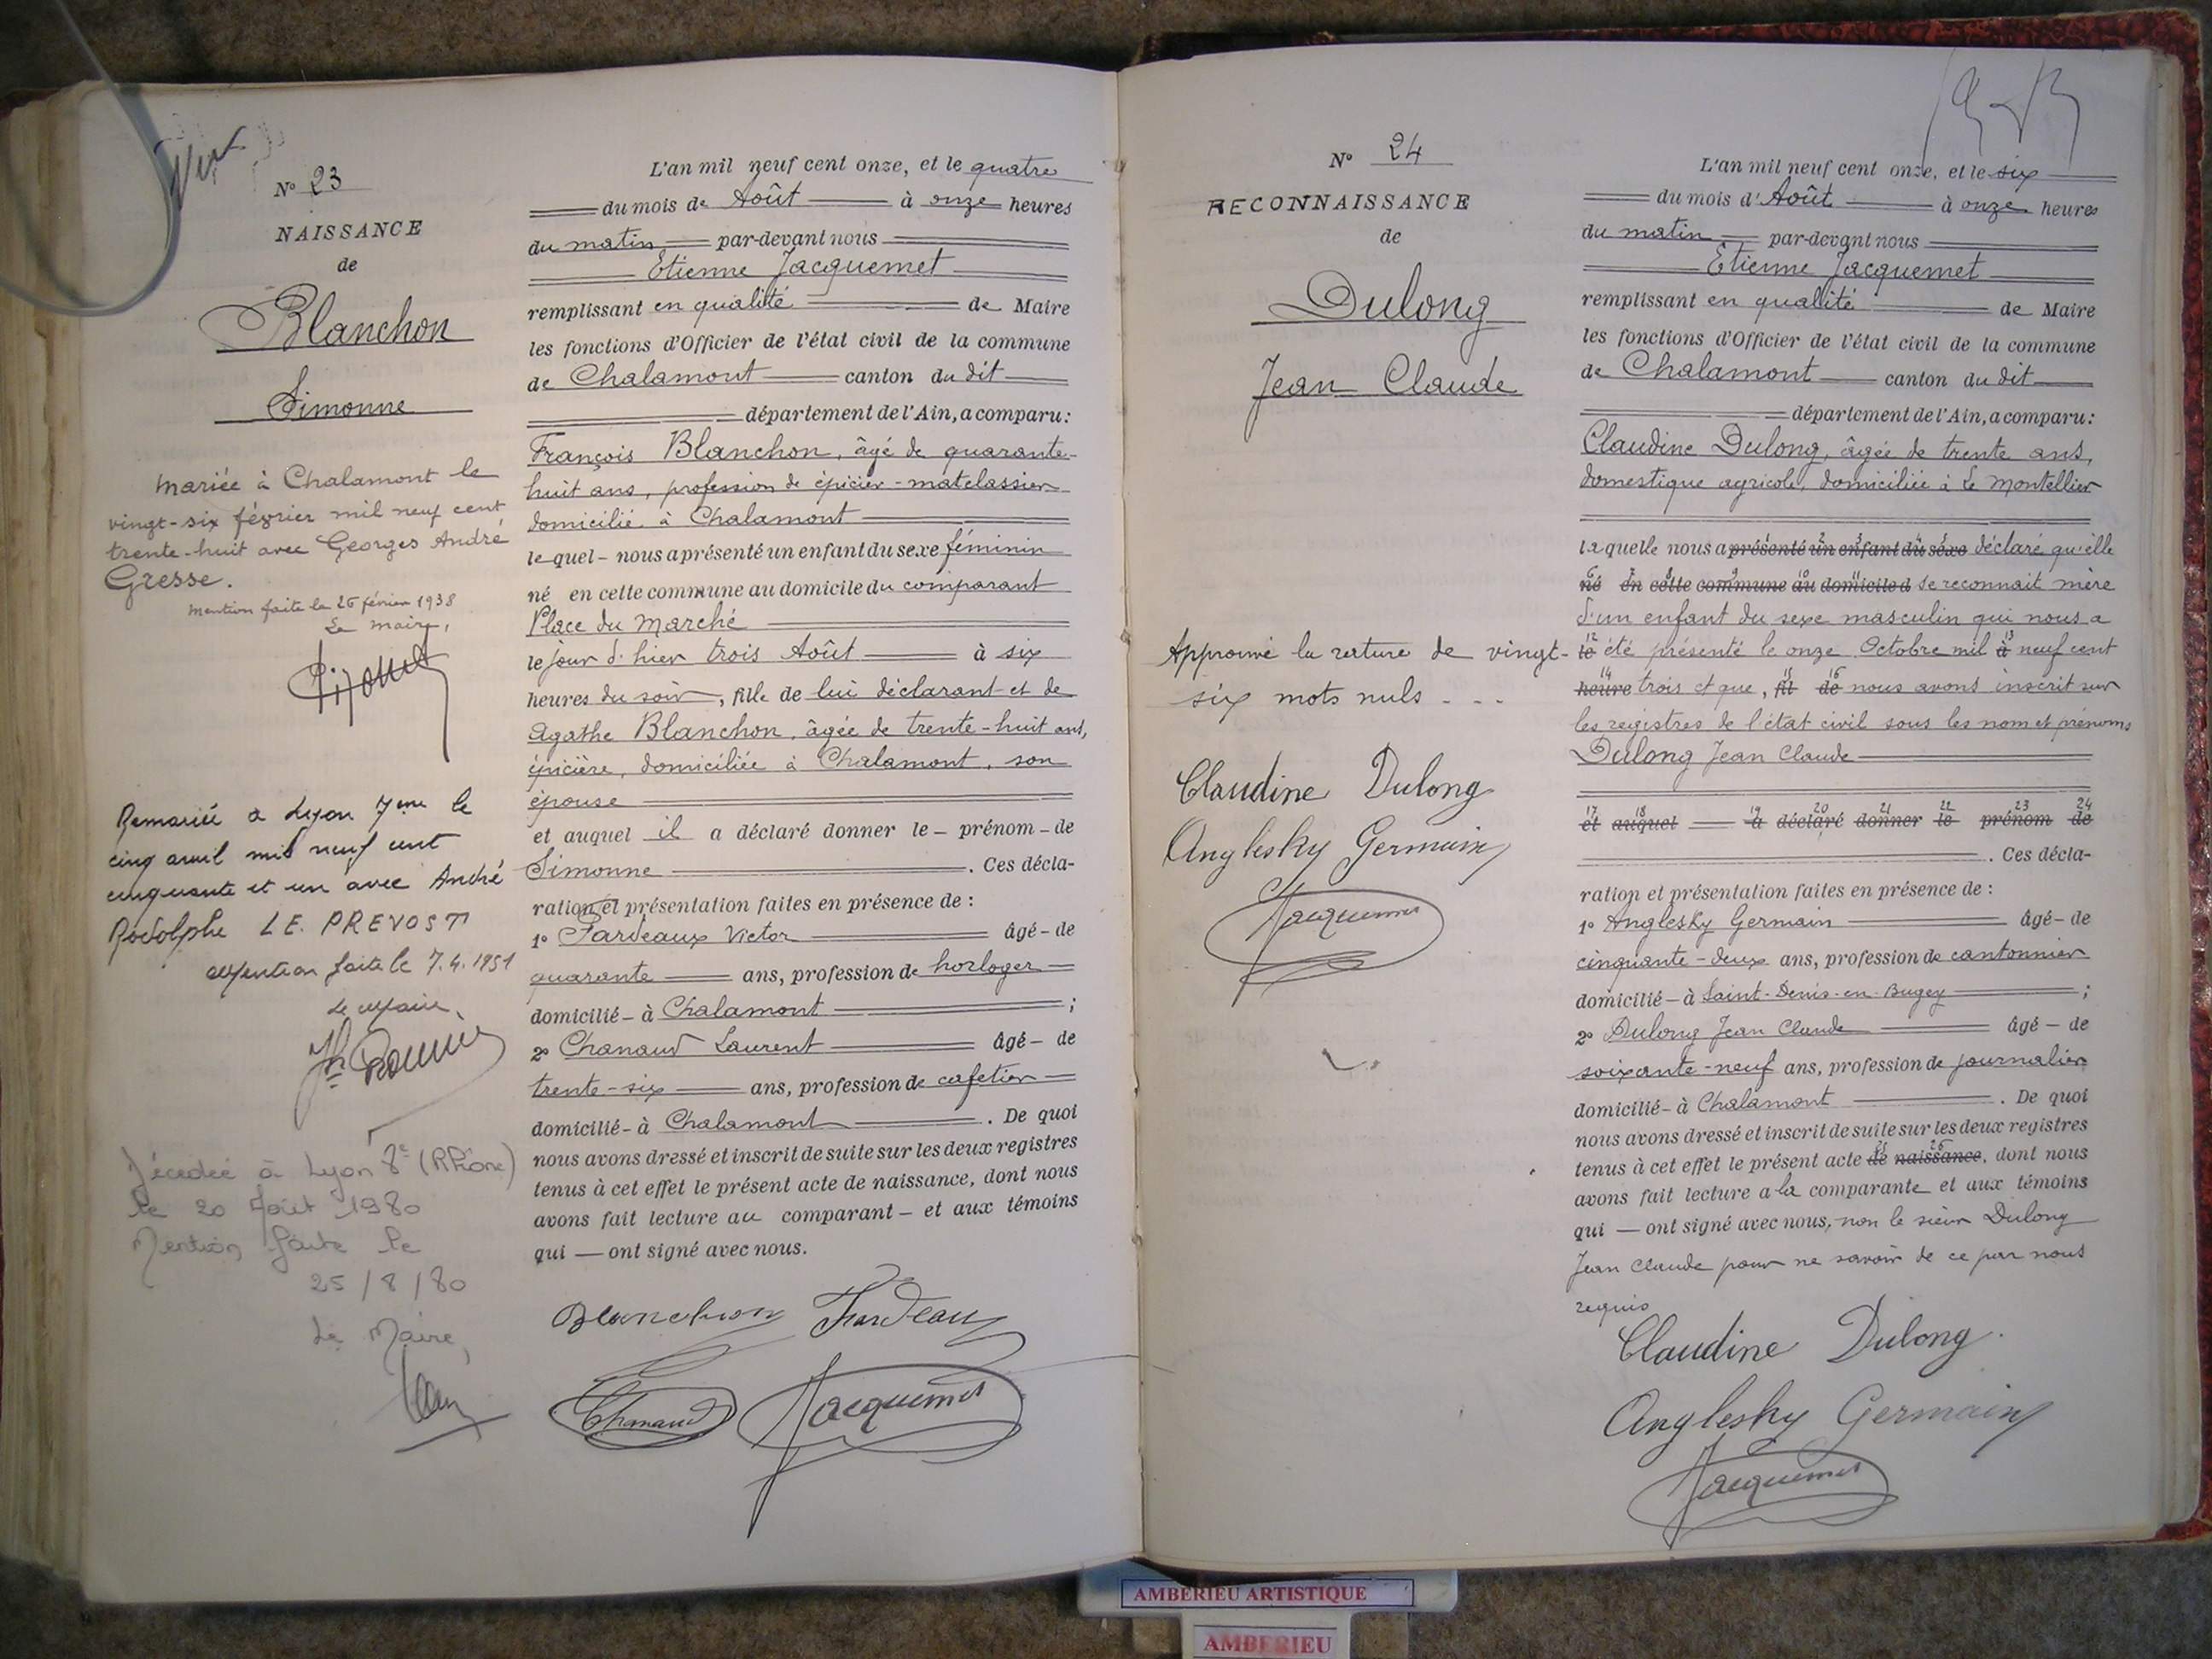 Vu
N° 23
NAISSANCE
de
Blanchon
Simonne
mariée à Chalamont le
vingt-six février mil neuf cent
trente-huit avec Georges André
Gresse.
mention faite le 26 février 1938
Le maire,
Remariée a Lyon 7eme le
cinq avril mil neuf cent
cinquante et un avec André
Rodolphe LE PREVOST
Mention faite le 7.4.1951
Le Maire,
Décédée à Lyon 8e (Rhône)
le 20 Août 1980
Mention faite le
25/8/80
Le Maire,
L'an mil neuf cent onze, et le quatre
du mois de Août à onze heures
du matin par-devant nous
Etienne Jacquemet
remplissant en qualité de Maire
les fonctions d'Officier de l'état civil de la commune
de Chalamont canton du dit
département de l'Ain, a comparu:
François Blanchon, âgé de quarante-
huit ans, profession de épicier-matelassier
domicilié à Chalamont
lequel - nous a présenté un enfant du sexe féminin
né en cette commune au domicile du comparant
Place du Marché
le jour d'hier trois Août à six
heures du soir, fille de lui déclarant et de
Agathe Blanchon, âgée de trente-huit ans,
épicière, domiciliée à Chalamont, son
épouse
et auquel il a déclaré donner le - prénom - de
Simonne . Ces décla-
ration et présentation faites en présence de :
1° Fardeaux Victor âgé - de
quarante ans, profession de horloger
domicilié - à Chalamont ;
2° Chanaud Laurent âgé - de
trente-six ans, profession de cafetier
domicilié - à Chalamont . De quoi
nous avons dressé et inscrit de suite sur les deux registres
tenus à cet effet le présent acte de naissance, dont nous
avons fait lecture au comparant - et aux témoins
qui — ont signé avec nous.
Blanchon Fardeaux
Chanaud Jacquemet
N° 24
RECONNAISSANCE
de
Dulong
Jean Claude
Approuvé la rature de vingt-
six mots nuls - - -
Claudine Dulong
Anglesky Germain
Jacquemet
L'an mil neuf cent onze, et le six
du mois d'Août à onze heures
du matin par-devant nous
Etienne Jacquemet
remplissant en qualité de Maire
les fonctions d'Officier de l'état civil de la commune
de Chalamont canton du dit
département de l'Ain, a comparu:
Claudine Dulong, âgée de trente ans,
domestique agricole, domiciliée à Le Montellier
laquelle nous a présenté un enfant du sexe déclaré qu'elle
né en cette commune au domicile d se reconnait mère
d'un enfant du sexe masculin qui nous a
le été présenté le onze Octobre mil à neuf cent
heure trois et que, fil de nous avons inscrit sur
les registres de l'état civil sous les nom et prénoms
Dulong Jean Claude
17 18 19 20 21 22 23 24
et auquel a déclaré donner le prénom de
. Ces décla-
ration et présentation faites en présence de :
1° Anglesky Germain âgé - de
cinquante-deux ans, profession de cantonnier
domicilié - à Saint-Denis-en-Bugey ;
2° Dulong Jean Claude âgé - de
soixante-neuf ans, profession de journalier
domicilié - à Chalamont . De quoi
nous avons dressé et inscrit de suite sur les deux registres
tenus à cet effet le présent acte de naissance, dont nous
avons fait lecture a la comparante et aux témoins
qui — ont signé avec nous, non le sieur Dulong
Jean Claude pour ne savoir de ce par nous
requis
Claudine Dulong.
Anglesky Germain
Jacquemet
AMBERIEU ARTISTIQUE
AMBERIEU